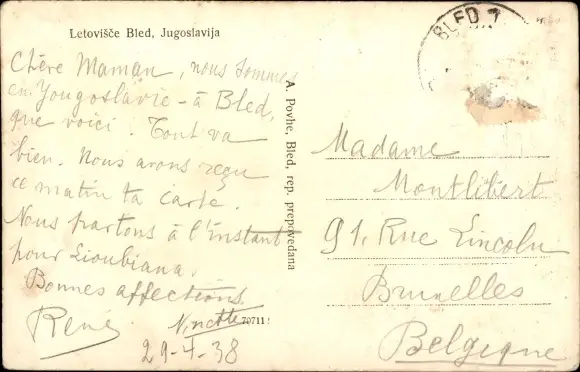 Letovišče Bled, Jugoslavija
BLED 1
Chère Maman, nous sommes
en Yougoslavie - à Bled,
que voici. Tout va
bien. Nous avons reçu
ce matin ta carte.
Nous partons à l'instant
pour Lioubiana.
Bonnes affections,
René Ninette
29-4-38
70711
A. Povhe, Bled, rep. prepovedana
Madame
Montlibert
91, Rue Lincoln
Bruxelles
Belgique